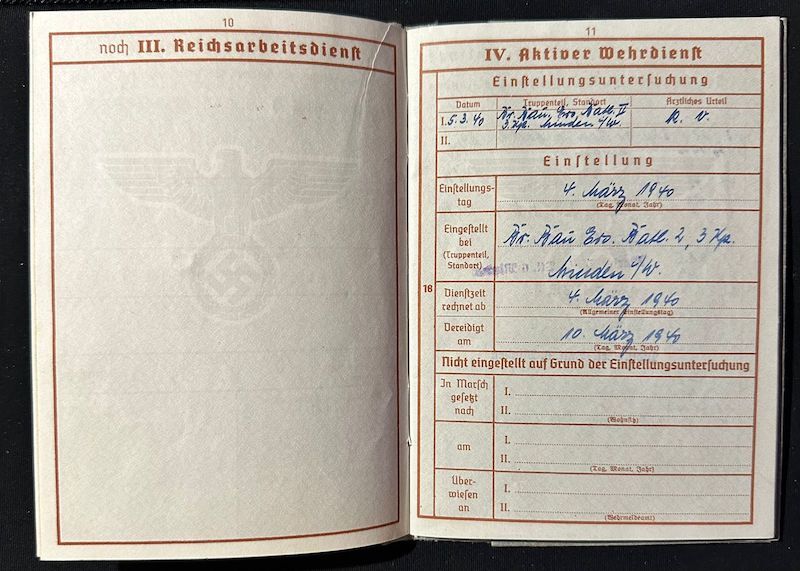 10
noch III. Reichsarbeitsdienst
11
IV. Aktiver Wehrdienst
Einstellungsuntersuchung
Datum Truppenteil, Standort Ärztliches Urteil
I. 5.3.40 Br. Bau Ers. Batl. 2 k. v.
3 Kp. Minden i/W.
II.
Einstellung
Einstellungs-
tag
4. März 1940
(Tag, Monat, Jahr)
Eingestellt
bei
(Truppenteil,
Standort)
Br. Bau Ers. Batl. 2, 3 Kp.
Minden i/W.
16
Dienstzeit
rechnet ab
4. März 1940
(Allgemeiner Einstellungstag)
Vereidigt
am
10. März 1940
(Tag, Monat, Jahr)
Nicht eingestellt auf Grund der Einstellungsuntersuchung
In Marsch
gesetzt
nach
I.
II.
(Wohnsitz)
am
I.
II.
(Tag, Monat, Jahr)
Über-
wiesen
an
I.
II.
(Wehrmeldeamt)